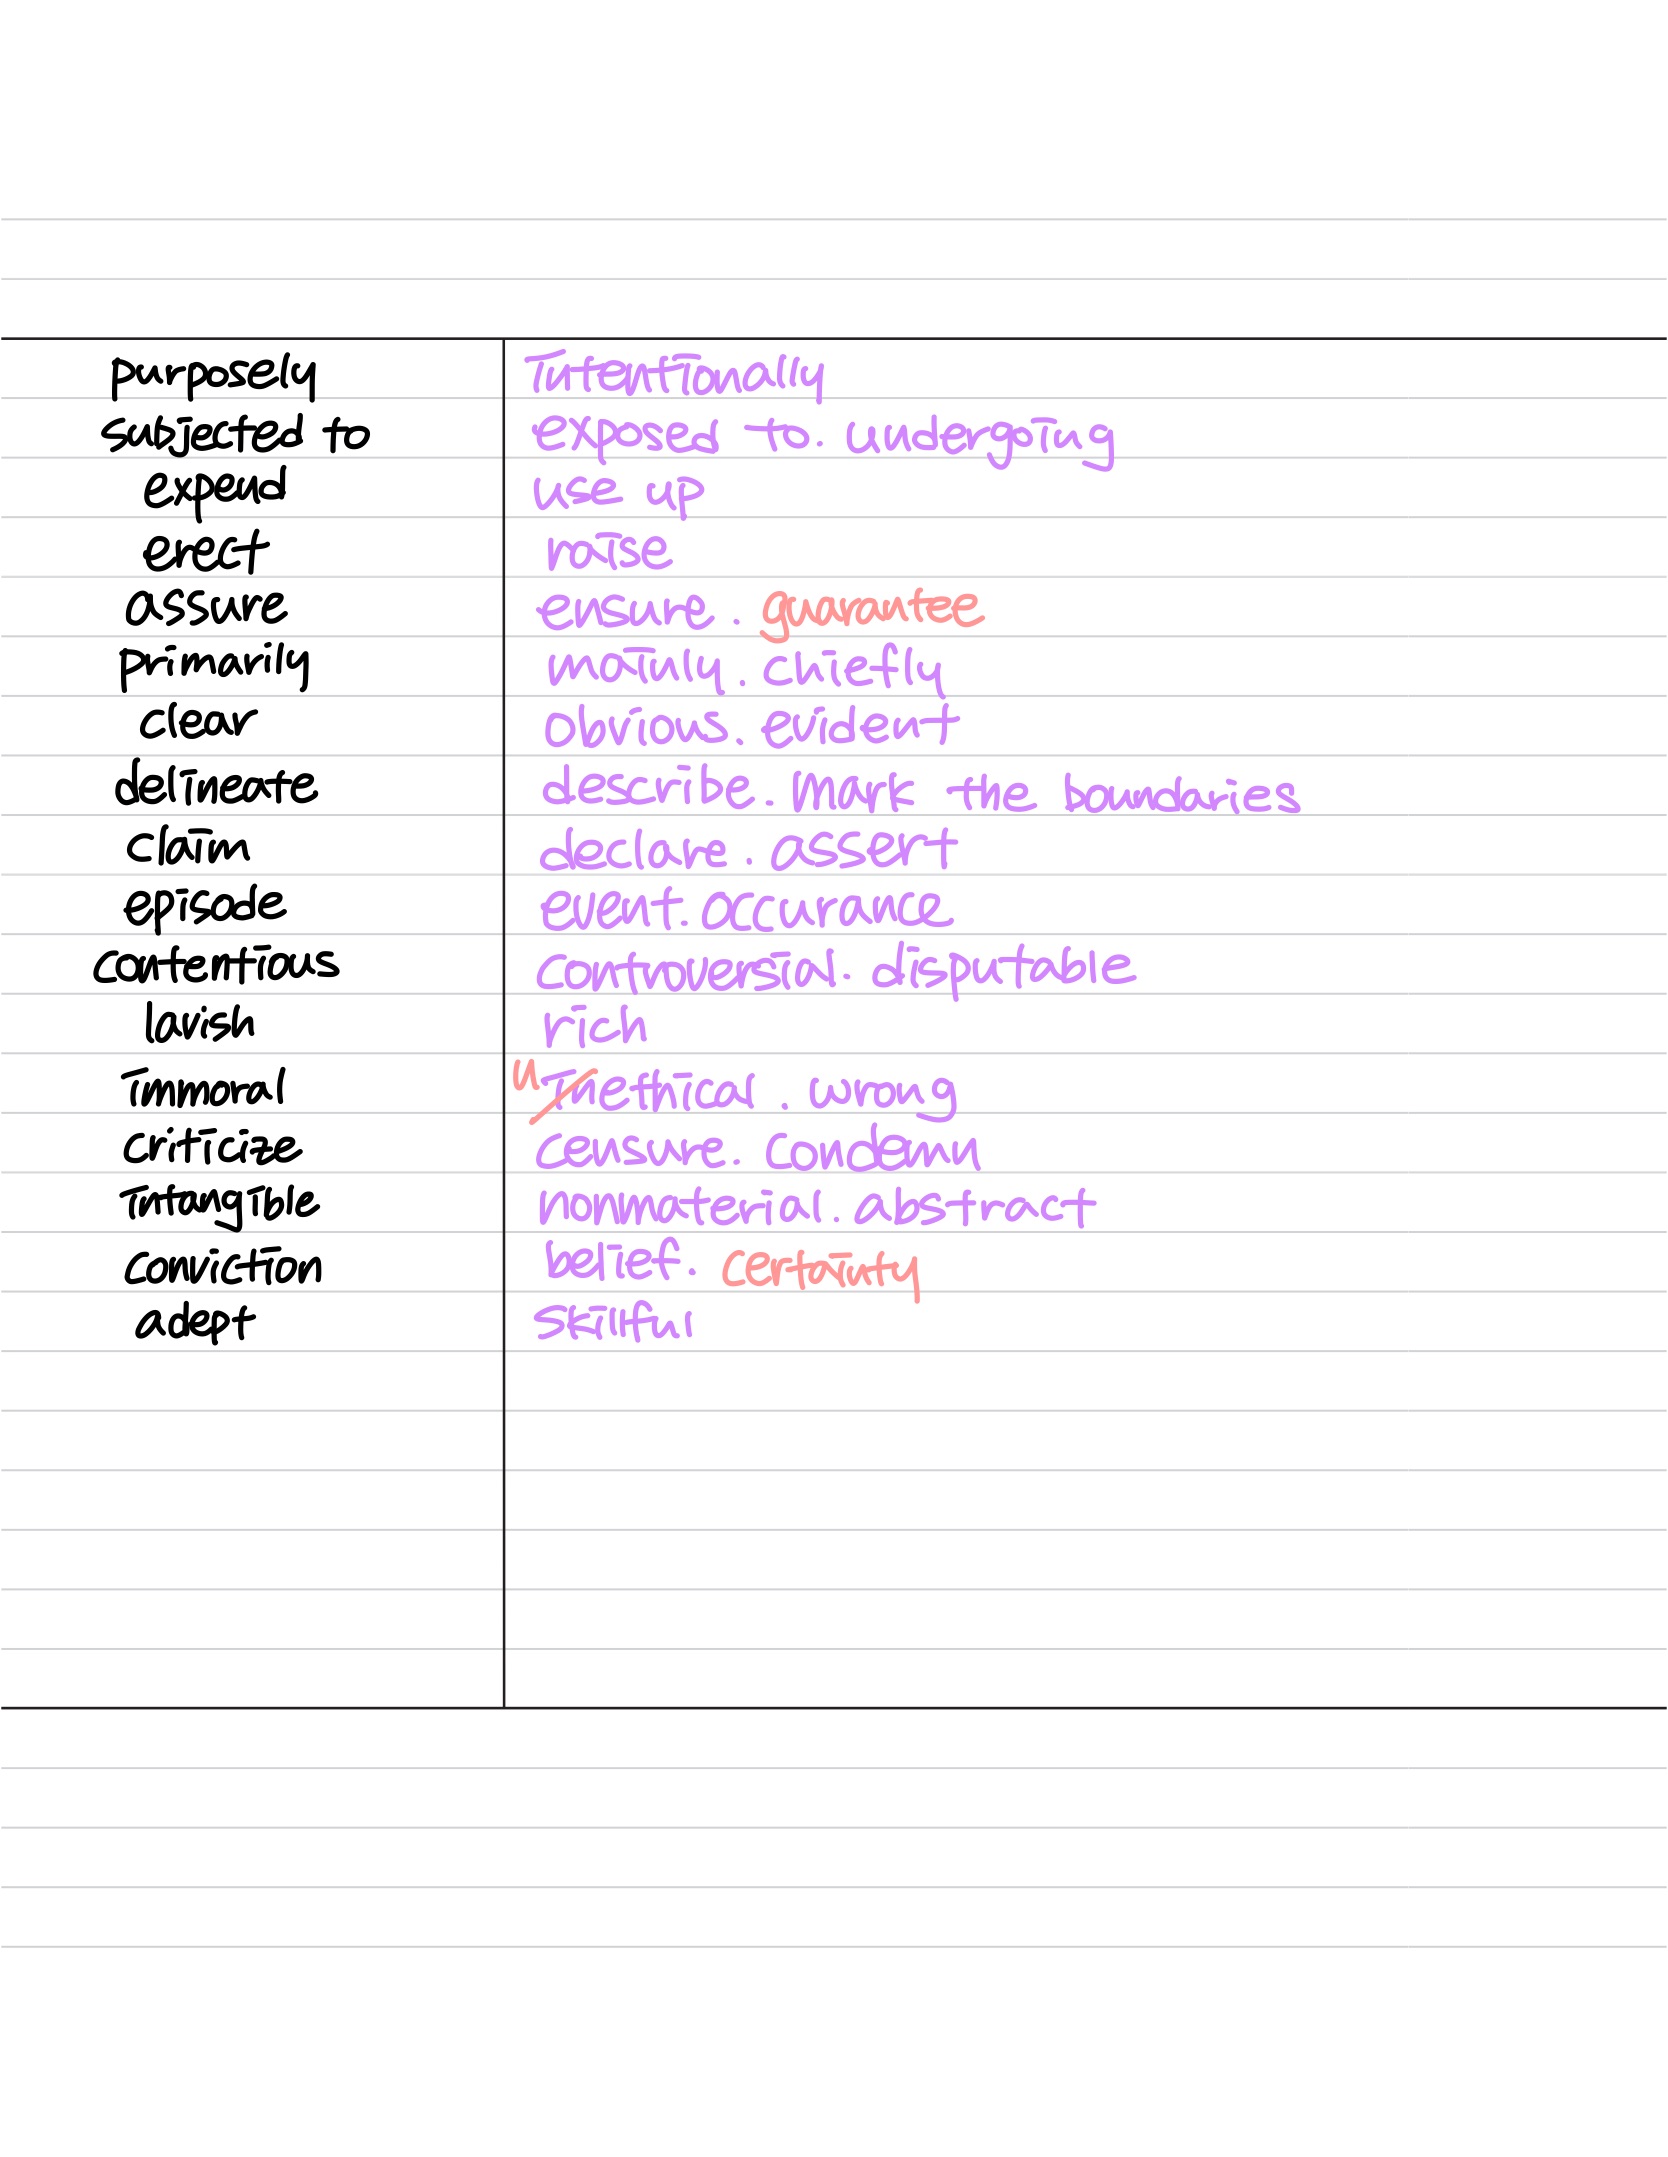 purposely intentionally
subjected to exposed to. undergoing
expend use up
erect raise
assure ensure. guarantee
primarily mainly. chiefly
clear obvious. evident
delineate describe. mark the boundaries
claim declare. assert
episode event. occurance
contentious controversial. disputable
lavish rich
immoral u inethical. wrong
criticize censure. condemn
intangible nonmaterial. abstract
conviction belief. certainty
adept skillful